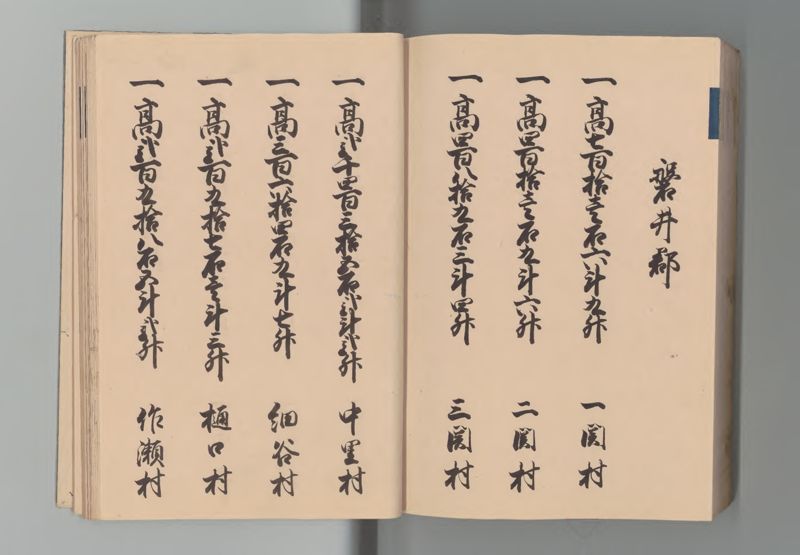 磐井郡
一高七百拾壱石六斗九升 一関村
一高四百拾壱石九斗六升 二関村
一高四百八拾九石三斗四升 三関村
一高弐千四百三拾五石弐斗弐升 中里村
一高三百六拾四石九斗七升 細谷村
一高弐百九拾七石壱斗三升 樋口村
一高弐百九拾八石五斗弐升 作瀬村